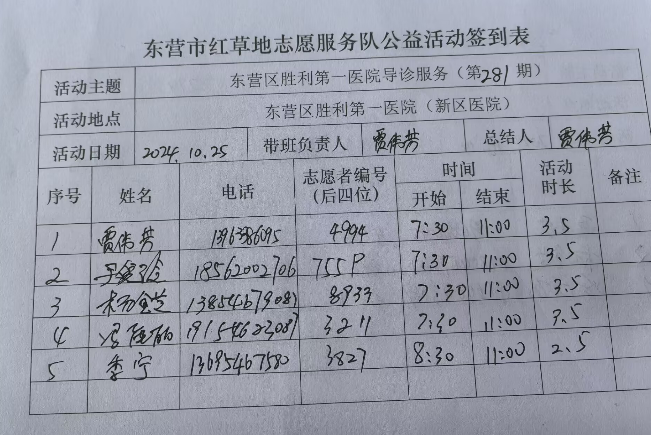 东营市红草地志愿服务队公益活动签到表
活动主题 东营区胜利第一医院导诊服务（第281期）
活动地点 东营区胜利第一医院（新区医院）
活动日期 2024.10.25 带班负责人 贾伟芳 总结人 贾伟芳
序号 姓名 电话 志愿者编号（后四位） 时间 开始 结束 活动时长 备注
1 贾伟芳 4994 7:30 11:00 3.5
2 18562002706 755P 7:30 11:00 3.5
3 13854679087 8933 7:30 11:00 3.5
4 19154623087 3211 7:30 11:00 3.5
5 季宁 13695467580 3827 8:30 11:00 2.5